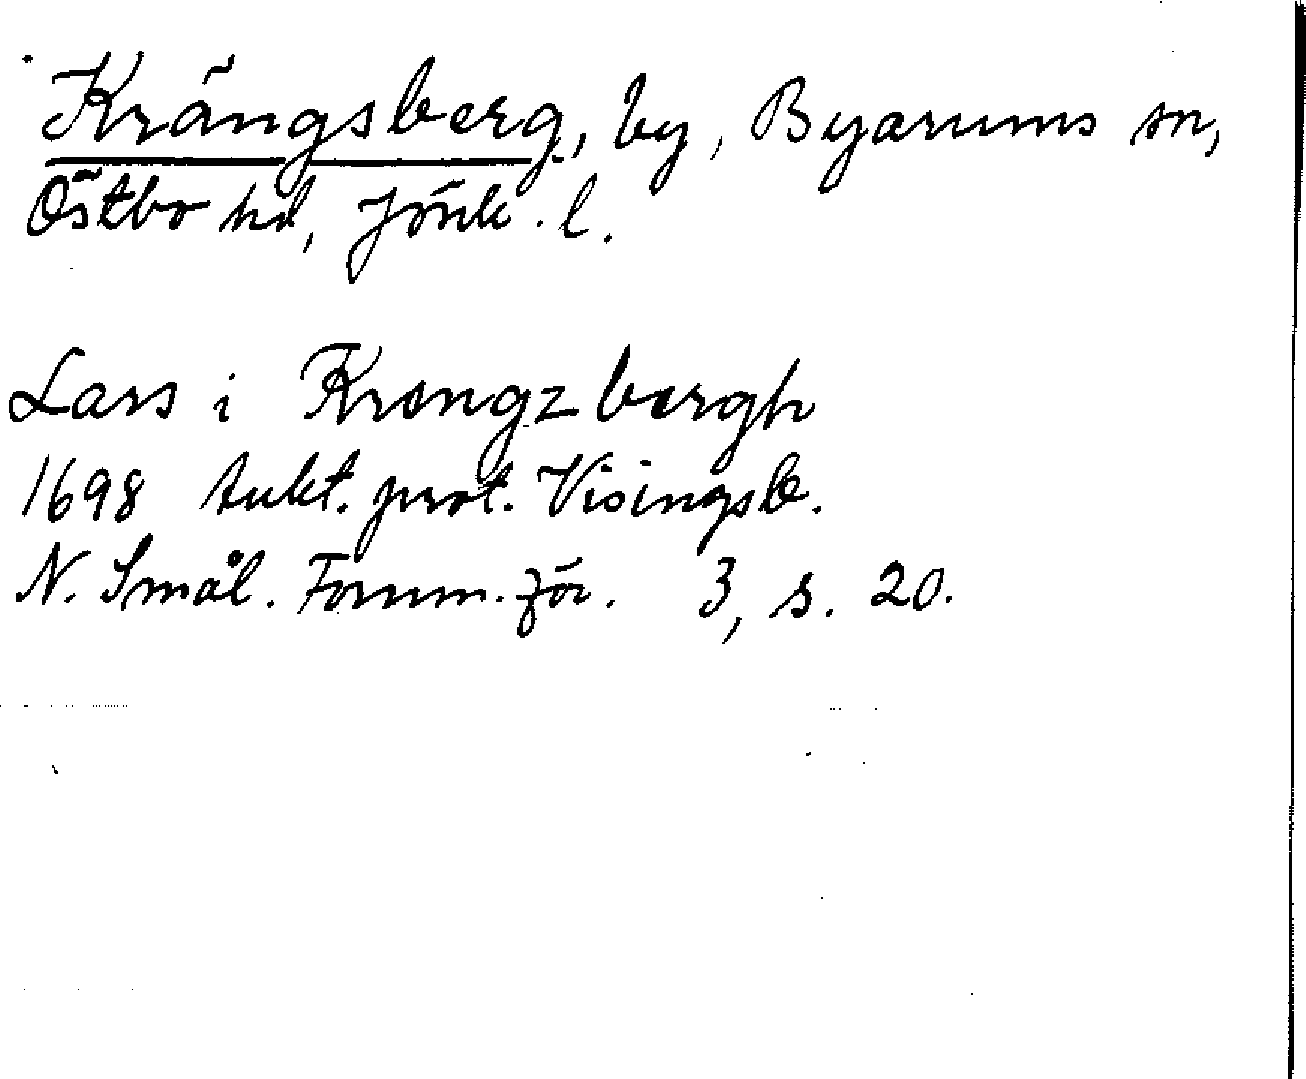 Krängsberg, by, Byarums sn,
Östbo hd, Jönk. l.
Lars i Krengzbergh
1698 tukt. prot. Visingsb.
N. Smål. Fornm. för. 3, s. 20.